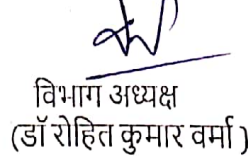 विभाग अध्यक्ष
(डॉ रोहित कुमार वर्मा)